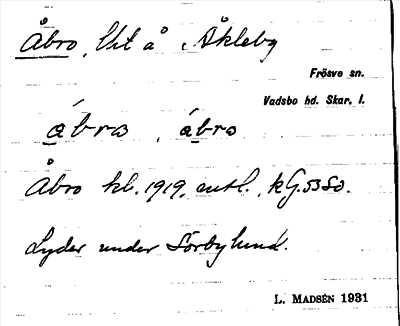 Åbro, lht å Åkleby
Frösve sn.
Vadsbo hd. Skar. l.
ábro, ábro
Åbro hb. 1919, entl. kG. 53 So.
Lyder under Sörbylund.
L. MADSÉN 1931